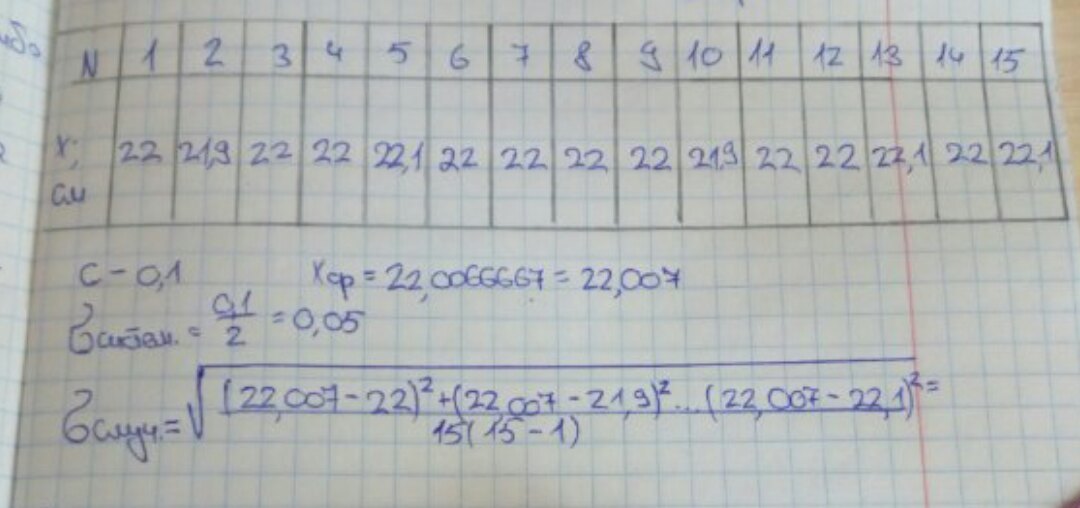 N 1 2 3 4 5 6 7 8 9 10 11 12 13 14 15
xi 22 21,9 22 22 22,1 22 22 22 22 21,9 22 22 22,1 22 22,1
см
C - 0,1 xср = 22,0066667 = 22,007
σсистем. = 0,1/2 = 0,05
σслуч. = √((22,007 - 22)² + (22,007 - 21,9)² ... (22,007 - 22,1)² / 15(15 - 1)) =